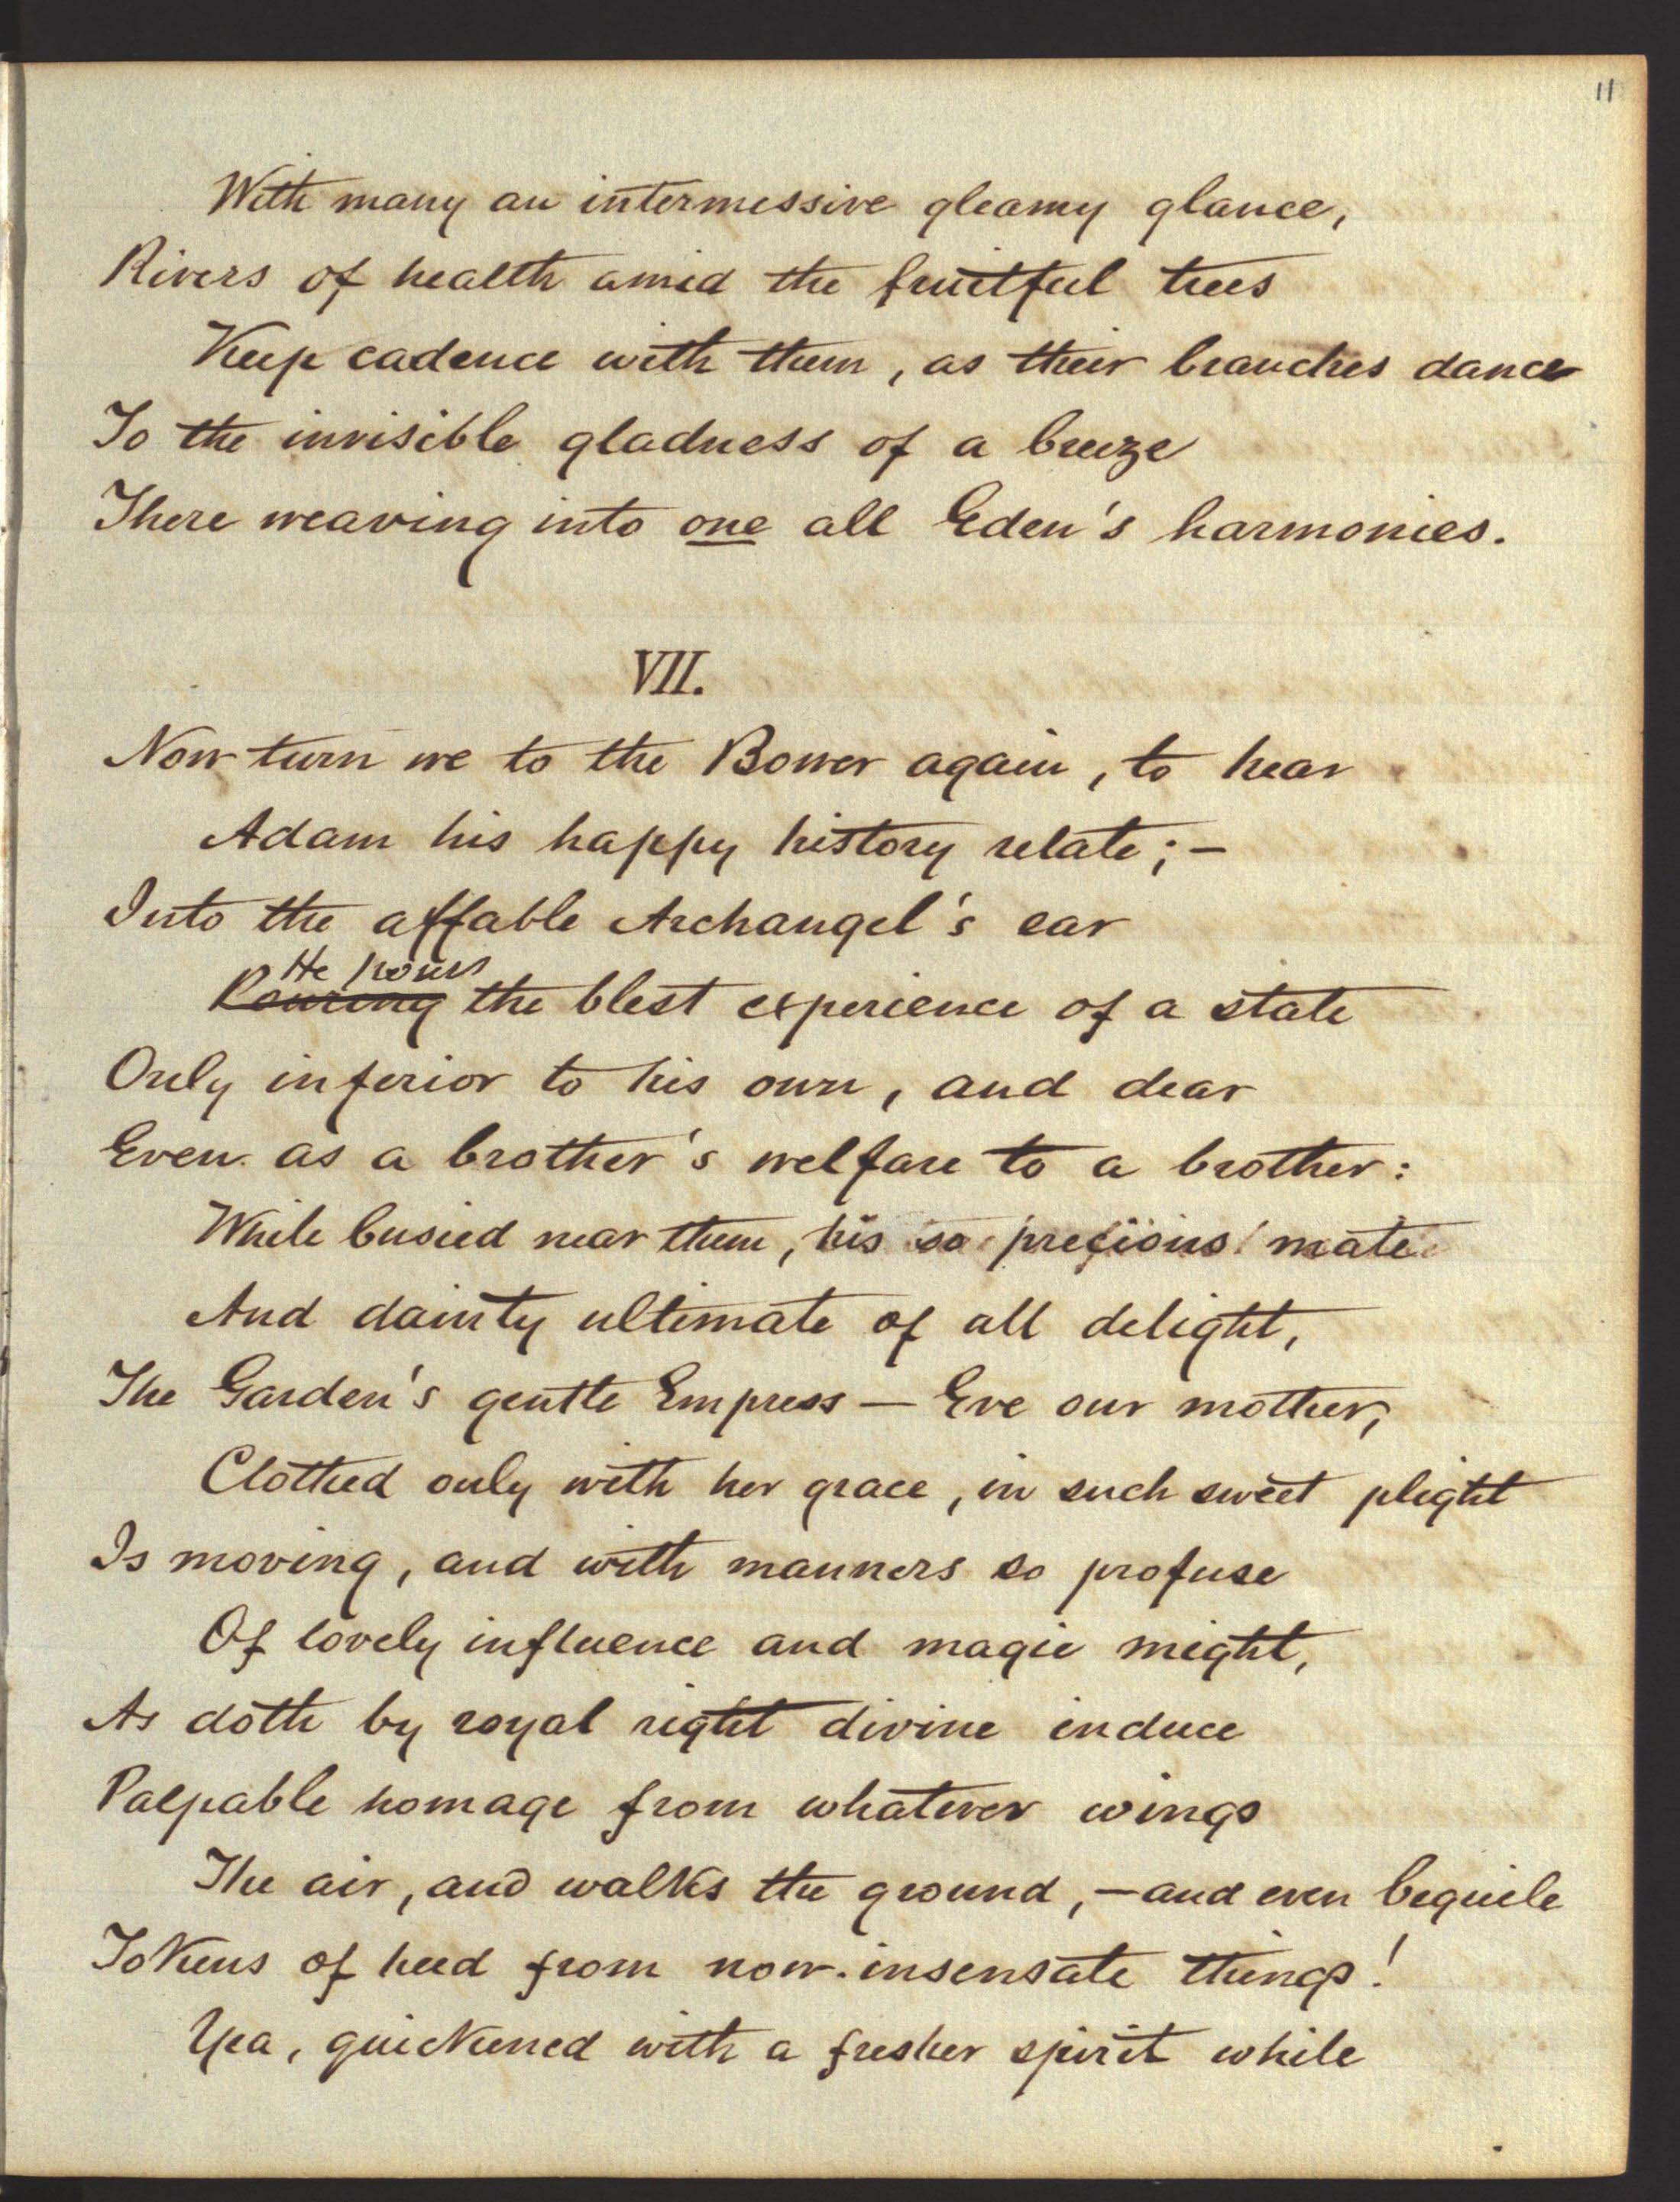 11
With many an intermissive gleamy glance,
Rivers of health amid the fruitful trees
Keep cadence with them, as their branches dance
To the invisible gladness of a breeze
There weaving into one all Eden's harmonies.
VII.
Now turn we to the Bower again, to hear
Adam his happy history relate; —
Into the affable Archangel's ear
He pours
Pouring the blest experience of a state
Only inferior to his own, and dear
Even as a brother's welfare to a brother:
While busied near them, his so precious mate
And dainty ultimate of all delight,
The Garden's gentle Empress — Eve our mother,
Clothed only with her grace, in such sweet plight
Is moving, and with manners so profuse
Of lovely influence and magic might,
As doth by royal right divine induce
Palpable homage from whatever wings
The air, and walks the ground, — and even beguile
Tokens of heed from now-insensate things!
Yea, quickened with a fresher spirit while